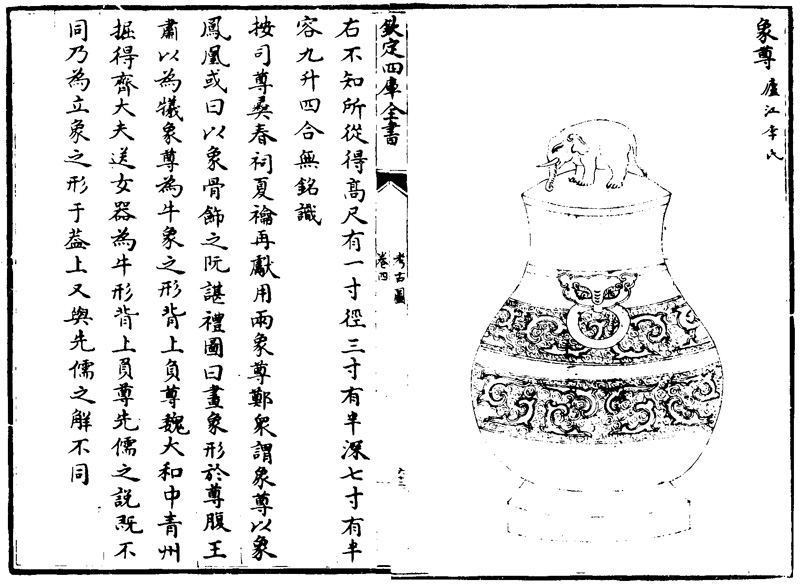 象尊 廬江李氏
欽定四庫全書
考古圖
卷四
右不知所從得高尺有一寸徑三寸有半深七寸有半
容九升四合無銘識
按司尊彝春祠夏禴再獻用兩象尊鄭衆謂象尊以象
鳳凰或曰以象骨飾之阮諶禮圖曰畫象形於尊腹王
肅以為犧象尊為牛象之形背上負尊魏大和中青州
掘得齊大夫送女器為牛形背上負尊先儒之說既不
同乃為立象之形于葢上又與先儒之解不同